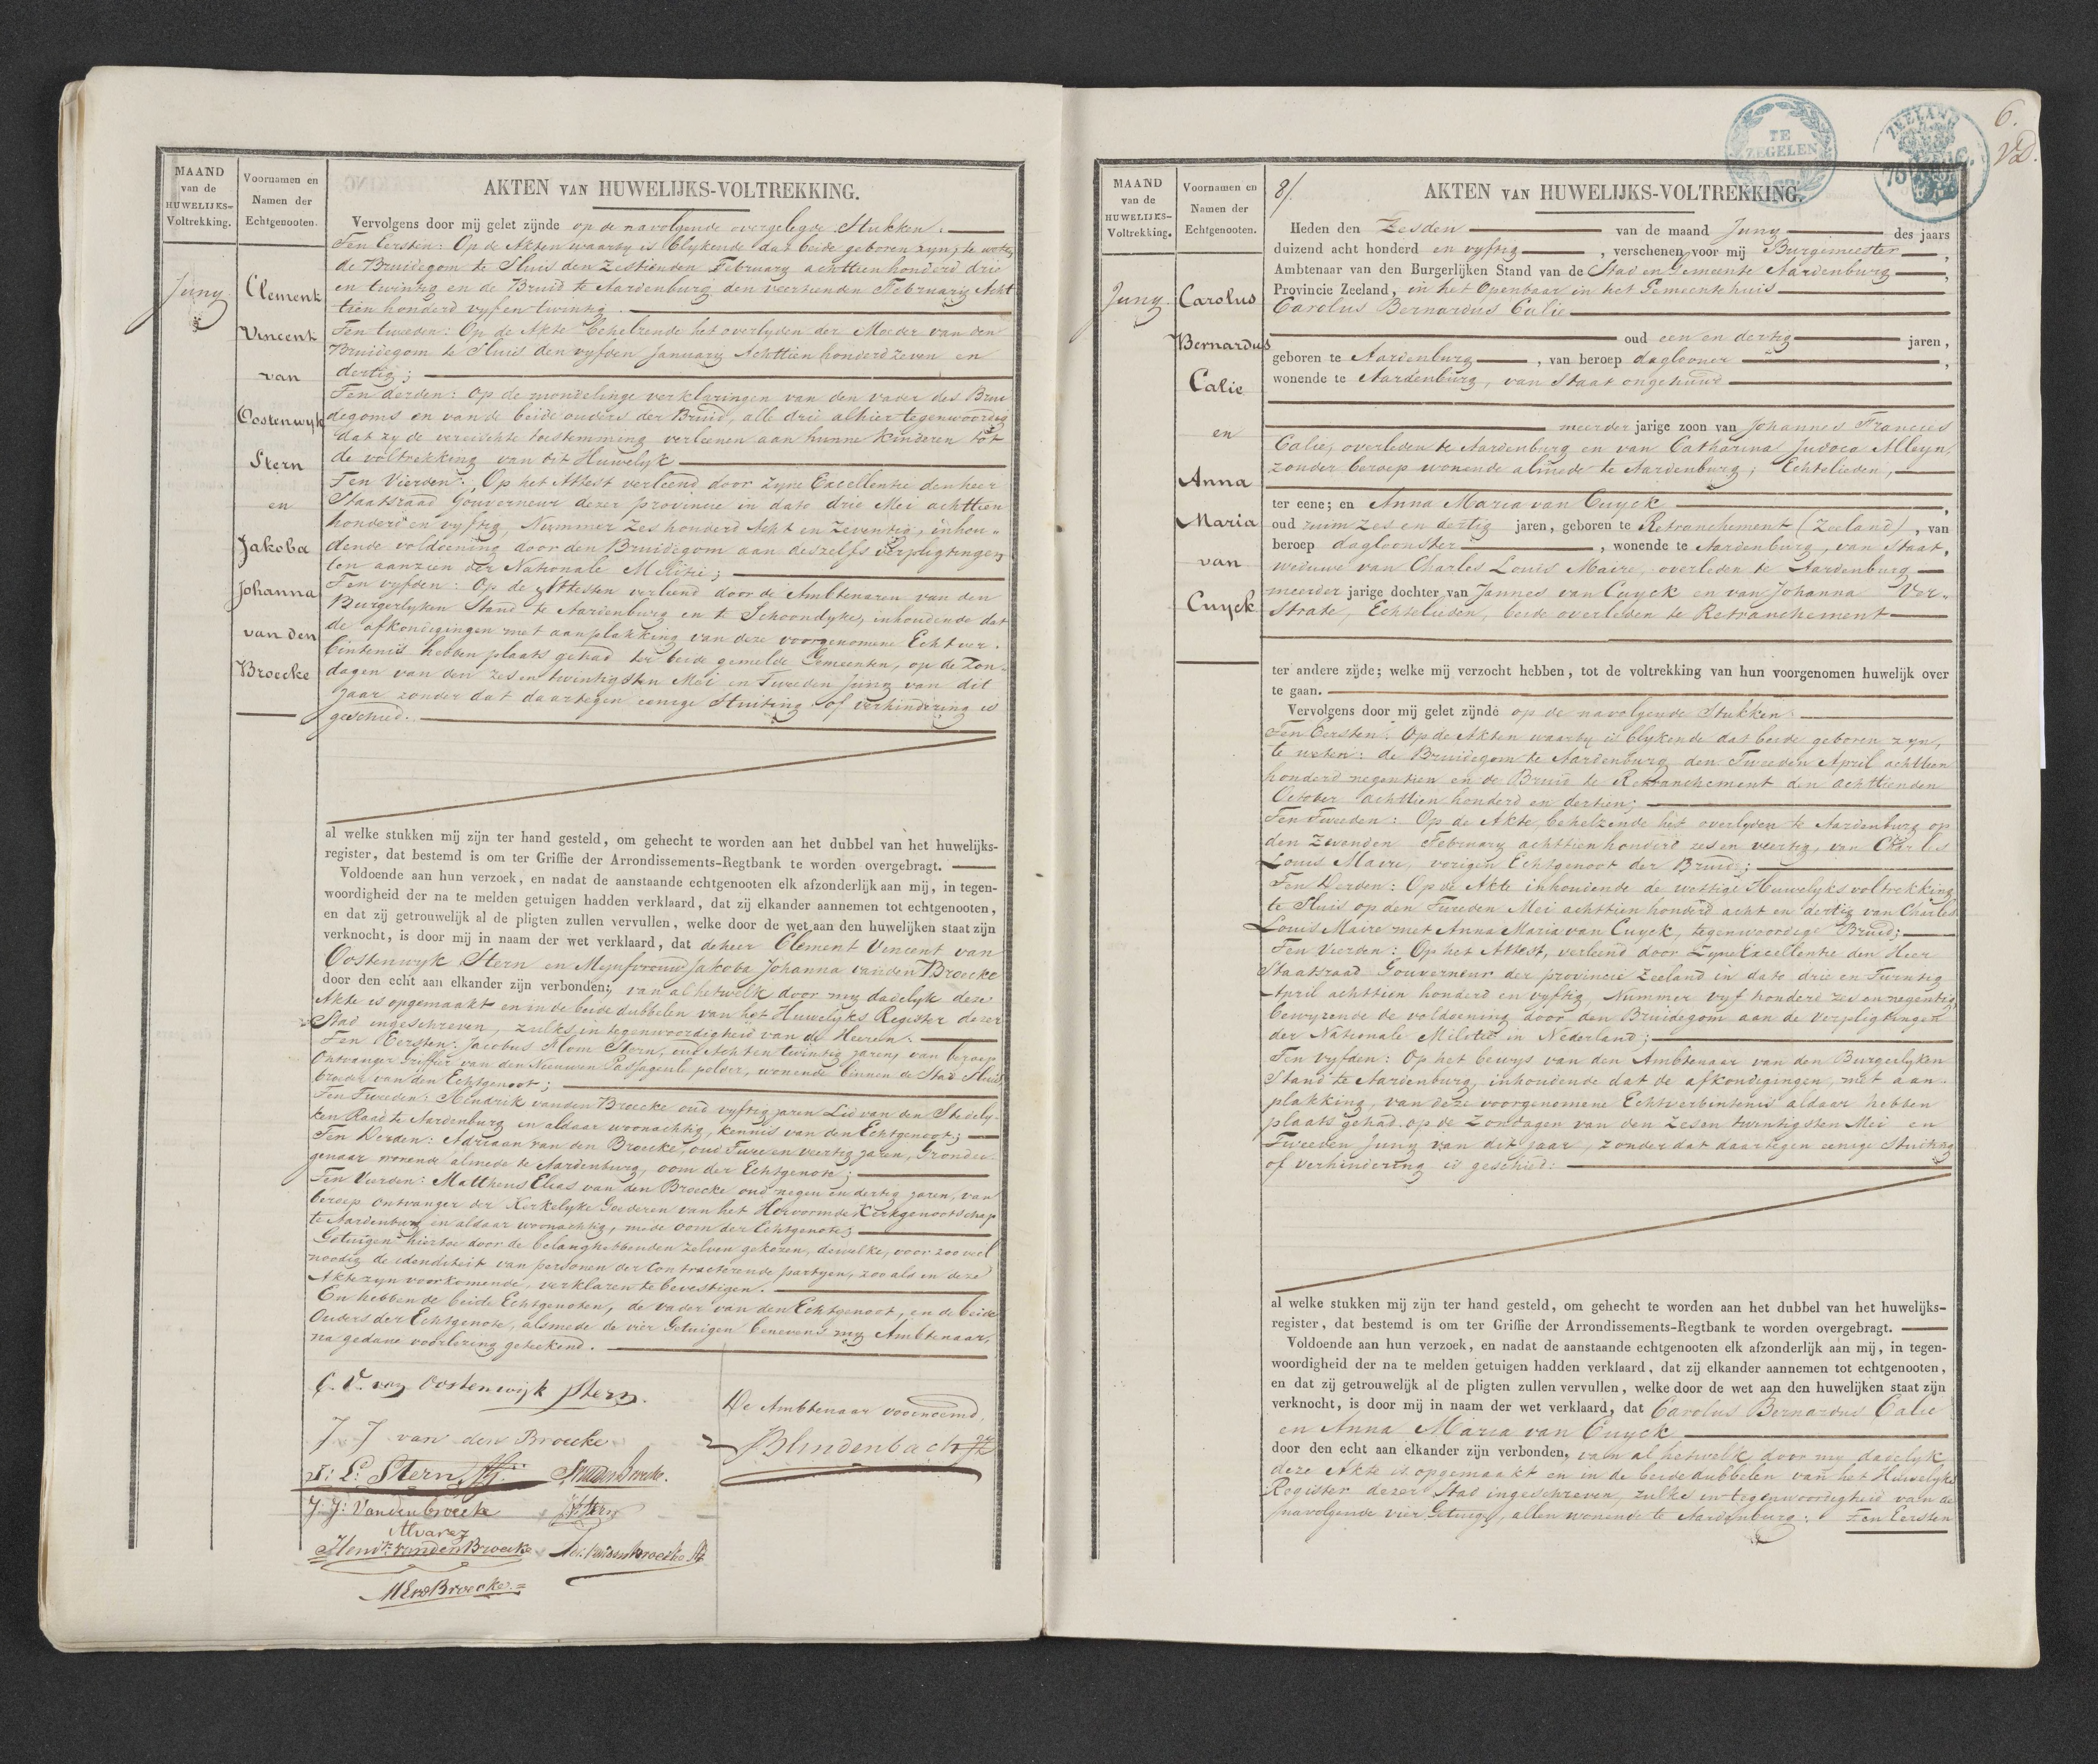 MAAND
van de
HUWELIJKS-
Voltrekking.
Voornamen en
Namen der
Echtgenooten.
AKTEN VAN HUWELIJKS-VOLTREKKING.
Juny
Clement
Vincent
van
Oostenwyk
Stern
en
Jakoba
Johanna
van den
Broecke
Vervolgens door mij gelet zijnde op de navolgende overgelegde Stukken:
Ten Eersten: Op de Akten waarby is blykende dat beide geboren zyn, te weten
de Bruidegom te Sluis den Zestienden February achttien honderd drie
en twintig en de Bruid te Aardenburg den veertienden February Acht
tien honderd vyf en twintig.
Ten tweeden: Op de Akte behelzende het overlyden der Moeder van den
Bruidegom te Sluis den vyfden January Achttien honderd zeven en
dertig;
Ten derden: Op de mondelinge verklaringen van den vader des Brui
degoms en van de beide ouders der Bruid, alle drie alhier tegenwoordig
dat zy de vereischte toestemming verleenen aan hunne kinderen tot
de voltrekking van dit Huwelyk
Ten Vierden: Op het Attest verleend door zyne Excellentie den heer
Staatsraad Gouverneur dezer provincie in dato drie Mei achttien
honderd en vyftig, Nummer Zes honderd Acht en Zeventig, inhou-
dende voldoening door den Bruidegom aan deszelfs verpligtingen
ten aanzien der Nationale Militie;
Ten vyfden: Op de Attesten verleend door de Ambtenaren van den
Burgerlyken Stand te Aardenburg en te Schoondyke, inhoudende dat
de afkondigingen met aanplakking van deze voorgenomene Echtver-
bintenis hebben plaats gehad ter beide gemelde Gemeenten, op de Zon-
dagen van den zes en twintigsten Mei en Tweeden Juny van dit
Jaar zonder dat daartegen eenige Stuiting of verhindering is
geschied.
al welke stukken mij zijn ter hand gesteld, om gehecht te worden aan het dubbel van het huwelijks-
register, dat bestemd is om ter Griffie der Arrondissements-Regtbank te worden overgebragt.
Voldoende aan hun verzoek, en nadat de aanstaande echtgenooten elk afzonderlijk aan mij, in tegen-
woordigheid der na te melden getuigen hadden verklaard, dat zij elkander aannemen tot echtgenooten,
en dat zij getrouwelijk al de pligten zullen vervullen, welke door de wet aan den huwelijken staat zijn
verknocht, is door mij in naam der wet verklaard, dat de heer Clement Vincent van
Oostenwyk Stern en Mejufvrouw Jakoba Johanna van den Broecke
door den echt aan elkander zijn verbonden; van al hetwelk door my dadelyk deze
Akte is opgemaakt en in de beide dubbelen van het Huwelyks Register dezer
Stad ingeschreven, zulks in tegenwoordigheid van de Heeren:
Ten Eersten: Jacobus Blom Stern, oud Acht en twintig jaren, van beroep
Ontvanger Griffier van den Nieuwen Passageule polder, wonende binnen de Stad Sluis,
broeder van den Echtgenoot;
Ten Tweeden: Hendrik van den Broecke oud vyftig jaren Lid van den Stedely-
ken Raad te Aardenburg en aldaar woonachtig, kennis van den Echtgenoot;
Ten Derden: Adriaan van den Broecke, oud Twee en veertig jaren, Grondei-
genaar wonende almede te Aardenburg, oom der Echtgenote;
Ten Vierden: Mattheus Elias van den Broecke oud negen en dertig jaren, van
beroep Ontvanger der Kerkelyke Goederen van het Hervormde Kerkgenootschap
te Aardenburg en aldaar woonachtig, mede oom der Echtgenote;
Getuigen hiertoe door de belanghebbenden zelven gekozen, dewelke, voor zoo veel
noodig de idenditeit van personen der Contracterende partyen, zoo als in deze
Akte zyn voorkomende, verklaren te bevestigen.
En hebben de beide Echtgenoten, de vader van den Echtgenoot, en de beide
Ouders der Echtgenote, alsmede de vier Getuigen benevens my Ambtenaar,
na gedane voorlezing geteekend.
C. V. van Oostenwijk Stern.
J J van den Broecke
De Ambtenaar voornoemd,
Blindenbach
J: L: Stern
J: J: Vandenbroecke
Alvarez
Hendk vandenBroecke
Adr. vandenBroecke
M E vd Broecke
TE
ZEGELEN
ZEELAND
6.
MAAND
van de
HUWELIJKS-
Voltrekking.
Voornamen en
Namen der
Echtgenooten.
8/.
AKTEN VAN HUWELIJKS-VOLTREKKING.
Juny.
Carolus
Bernardus
Calie
en
Anna
Maria
van
Cuyck
Heden den Zesden van de maand Juny des jaars
duizend acht honderd en vyftig, verschenen voor mij Burgemeester,
Ambtenaar van den Burgerlijken Stand van de Stad en Gemeente Aardenburg,
Provincie Zeeland, in het Openbaar in het Gemeente huis
Carolus Bernardus Calie
oud een en dertig jaren,
geboren te Aardenburg, van beroep daglooner,
wonende te Aardenburg, van Staat ongehuwd
meerder jarige zoon van Johannes Francies
Calie, overleden te Aardenburg en van Catharina Judoca Alleyn,
zonder beroep wonende almede te Aardenburg; Echtelieden,
ter eene; en Anna Maria van Cuyck,
oud ruim zes en dertig jaren, geboren te Retranchement (Zeeland), van
beroep dagloonster, wonende te Aardenburg, van Staat,
weduwe van Charles Louis Maire, overleden te Aardenburg
meerder jarige dochter van Jannes van Cuyck en van Johanna Ver-
strate, Echtelieden, beide overleden te Retranchement
ter andere zijde; welke mij verzocht hebben, tot de voltrekking van hun voorgenomen huwelijk over
te gaan.
Vervolgens door mij gelet zijnde op de navolgende Stukken:
Ten Eersten: Op de Akten waarby is blykende dat beide geboren zyn,
te weten: de Bruidegom te Aardenburg den Tweeden April achttien
honderd negentien en de Bruid te Retranchement den achttienden
October achttien honderd en dertien;
Ten Tweeden: Op de Akte, behelzende het overlyden te Aardenburg op
den Zevenden February achttien honderd zes en veertig, van Charles
Louis Maire, vorigen Echtgenoot der Bruid;
Ten Derden: Op de Akte inhoudende de wettige Huwelyks voltrekking
te Sluis op den Tweeden Mei achttien honderd acht en dertig van Charles
Louis Maire met Anna Maria van Cuyck, tegenwoordige Bruid;
Ten Vierden: Op het Attest, verleend door Zyne Excellentie den Heer
Staatsraad Gouverneur der provincie Zeeland in dato drie en Twintig
April achttien honderd en vyftig, Nummer vyf honderd zes en negentig
bewyzende de voldoening door den Bruidegom aan de verpligtingen
der Nationale Militie in Nederland;
Ten vyfden: Op het bewys van den Ambtenaar van den Burgerlyken
Stand te Aardenburg, inhoudende dat de afkondigingen, met aan-
plakking, van deze voorgenomene Echtverbintenis aldaar hebben
plaats gehad op de Zondagen van den Zes en twintigsten Mei en
Tweeden Juny van dit jaar, zonder dat daartegen eenige Stuiting
of verhindering is geschied:
al welke stukken mij zijn ter hand gesteld, om gehecht te worden aan het dubbel van het huwelijks-
register, dat bestemd is om ter Griffie der Arrondissements-Regtbank te worden overgebragt.
Voldoende aan hun verzoek, en nadat de aanstaande echtgenooten elk afzonderlijk aan mij, in tegen-
woordigheid der na te melden getuigen hadden verklaard, dat zij elkander aannemen tot echtgenooten,
en dat zij getrouwelijk al de pligten zullen vervullen, welke door de wet aan den huwelijken staat zijn
verknocht, is door mij in naam der wet verklaard, dat Carolus Bernardus Calie
en Anna Maria van Cuyck
door den echt aan elkander zijn verbonden, van al hetwelk door my dadelyk
deze Akte is opgemaakt en in de beide dubbelen van het Huwelyks
Register dezer Stad ingeschreven, zulks in tegenwoordigheid van de
navolgende vier Getuigen, allen wonende te Aardenburg: Ten Eersten